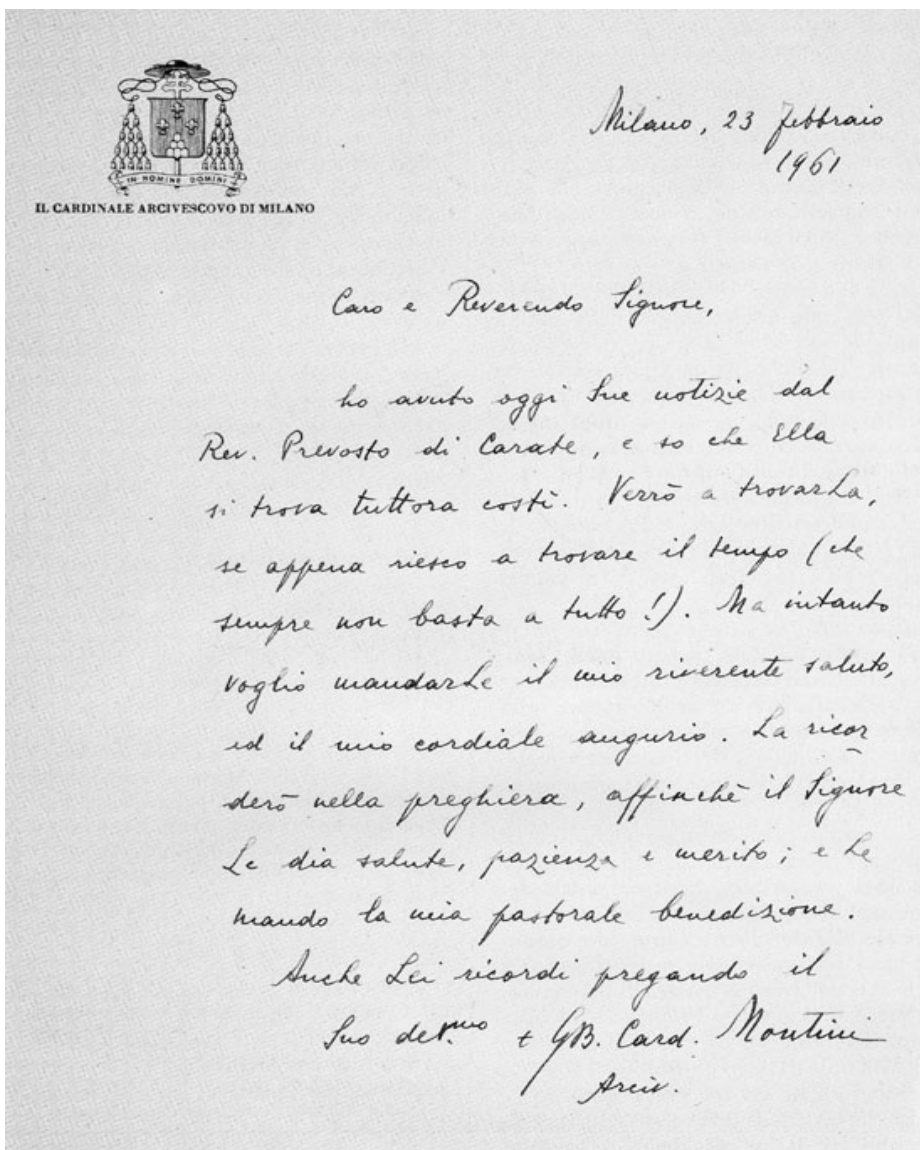 IN NOMINE DOMINI
IL CARDINALE ARCIVESCOVO DI MILANO
Milano, 23 febbraio
1961
Caro e Reverendo Signore,
ho avuto oggi Sue notizie dal
Rev. Prevosto di Carate, e so che Ella
si trova tuttora costì. Verrò a trovarLa,
se appena riesco a trovare il tempo (che
sempre non basta a tutto!). Ma intanto
voglio mandarLe il mio riverente saluto,
ed il mio cordiale augurio. La ricor
derò nella preghiera, affinchè il Signore
Le dia salute, pazienza e merito; e Le
mando la mia pastorale benedizione.
Anche Lei ricordi pregando il
Suo dev.mo + GB. Card. Montini
Arciv.